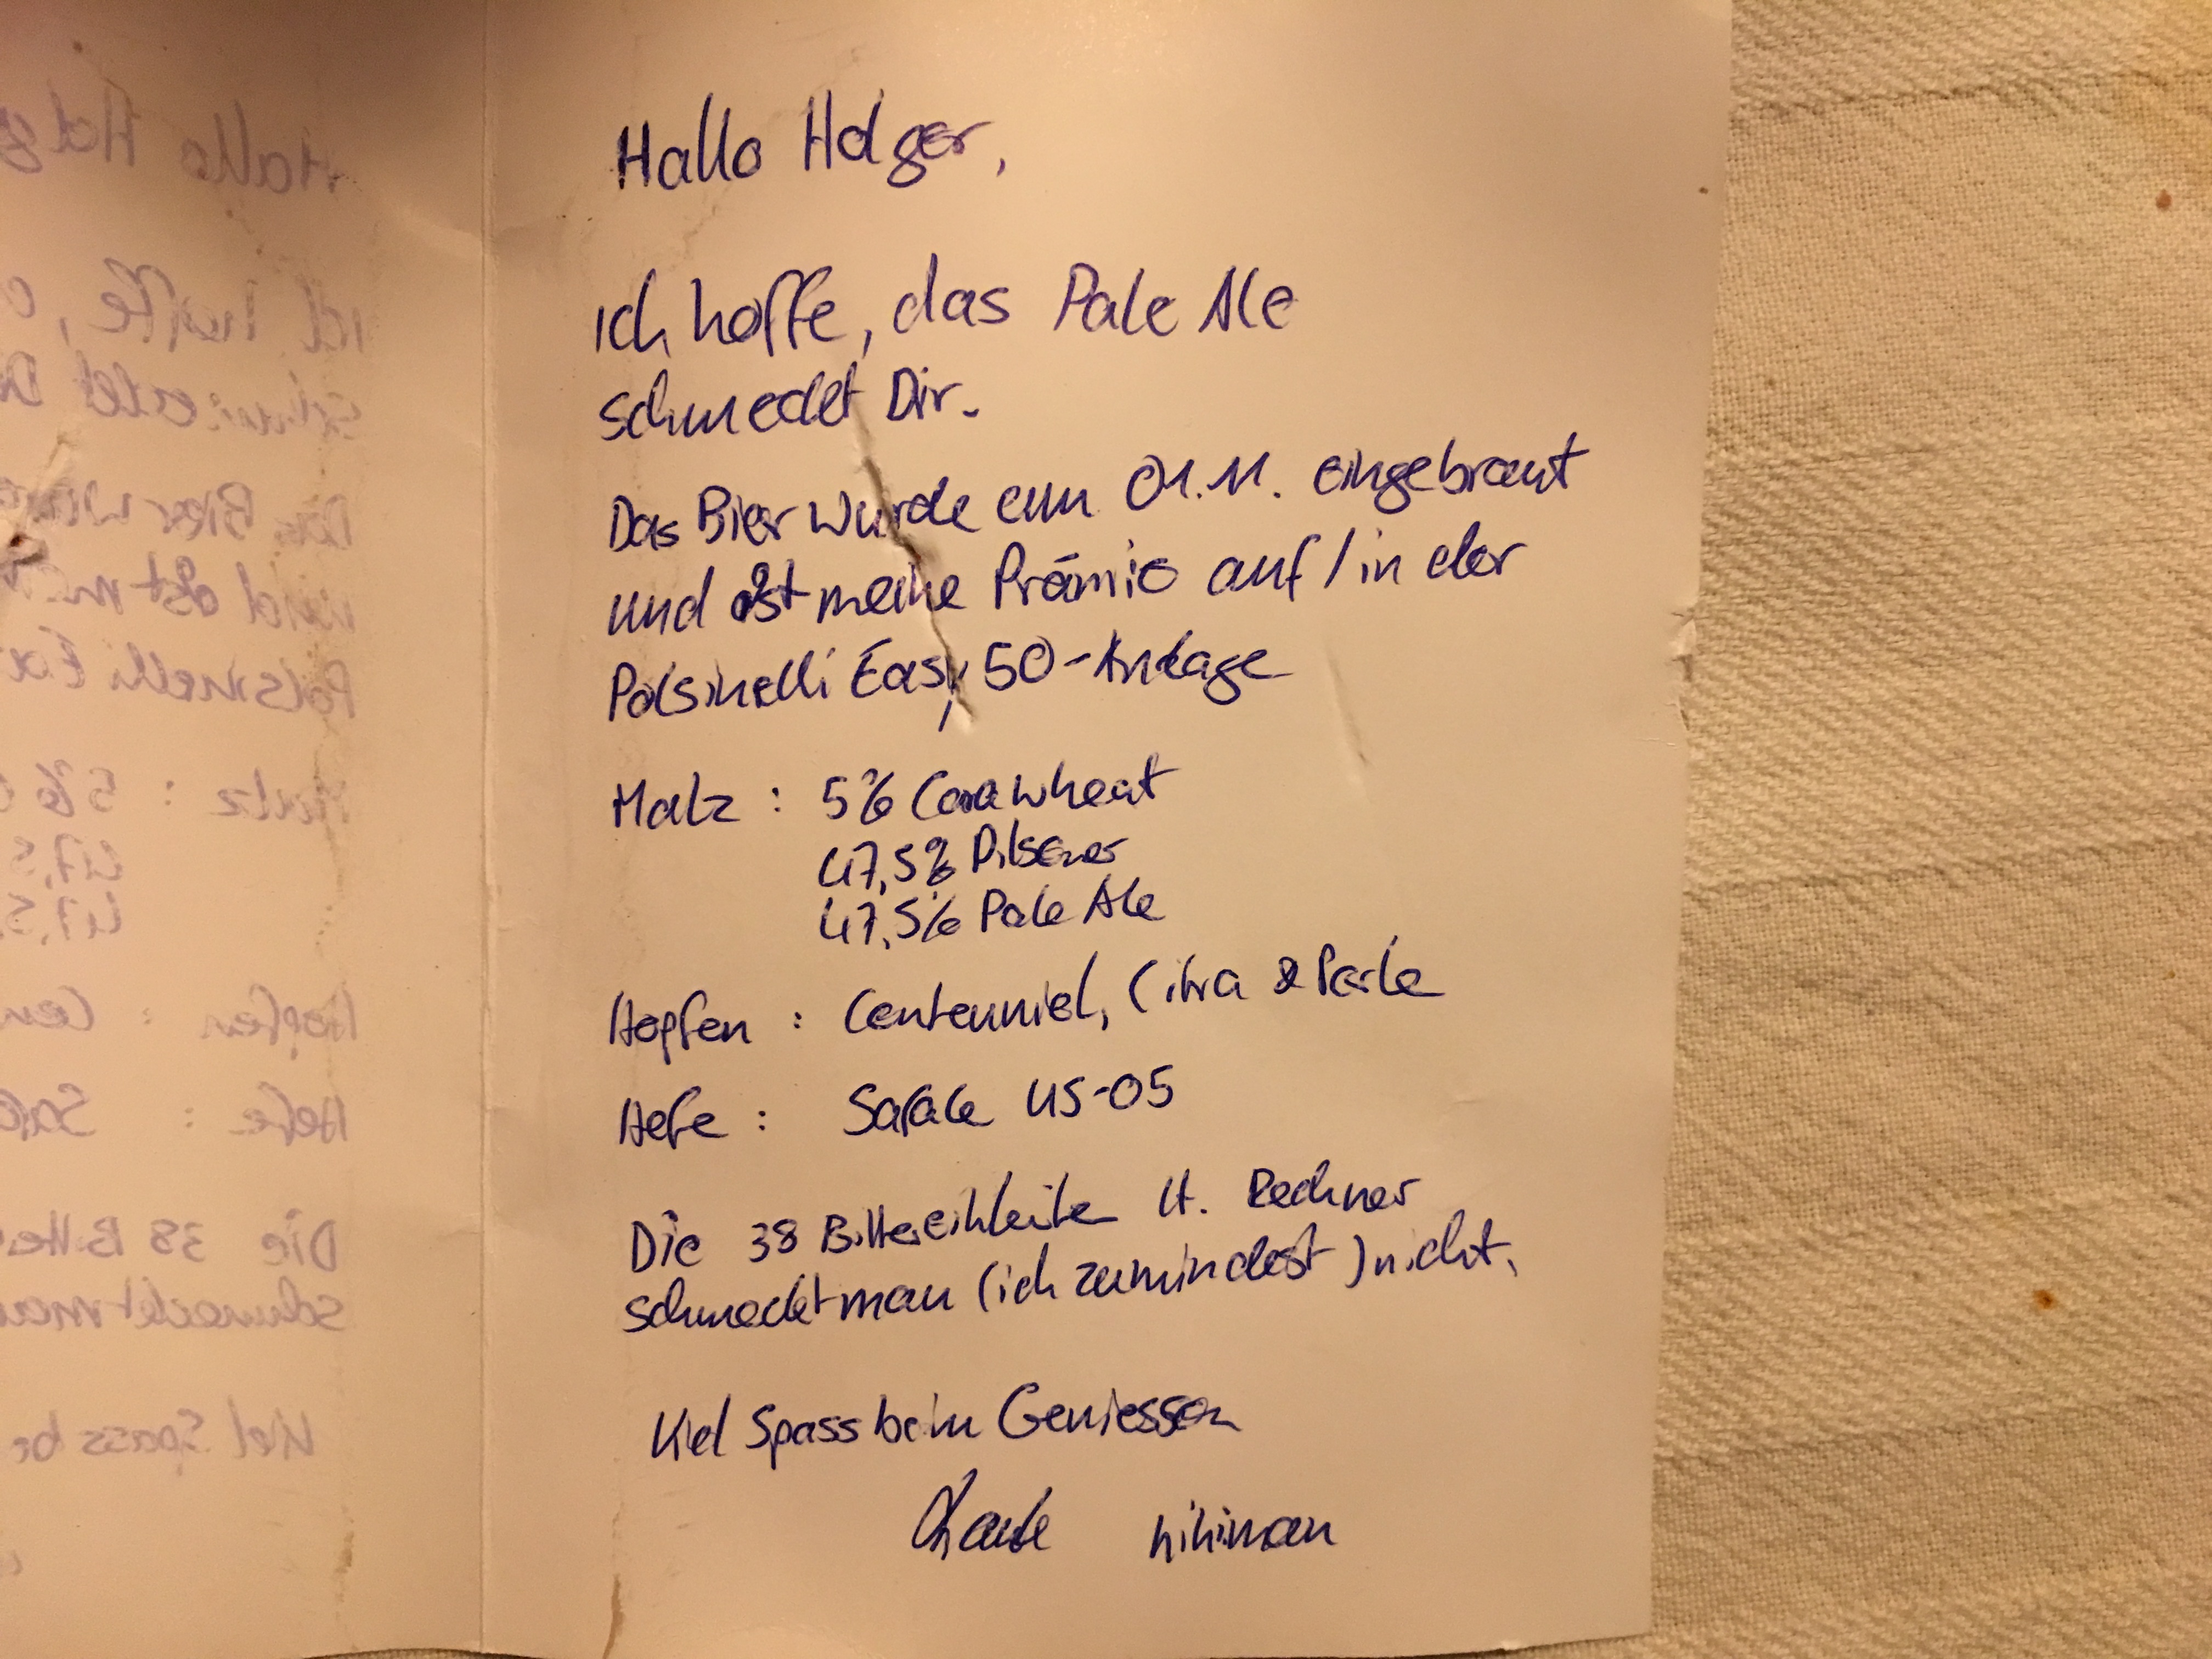 Hallo Holger,
ich hoffe, das Pale Ale
schmeckt Dir.
Das Bier wurde am 01.11. eingebraut
und ist meine Prämie auf / in der
Polsinelli Easy 50-Anlage
Malz : 5% Carawheat
47,5% Pilsener
47,5% Pale Ale
Hopfen : Centenniel, Citra & Perle
Hefe : Safale US-05
Die 38 Bittereinheiten lt. Rechner
schmeckt man (ich zumindest) nicht.
Viel Spass beim Geniessen